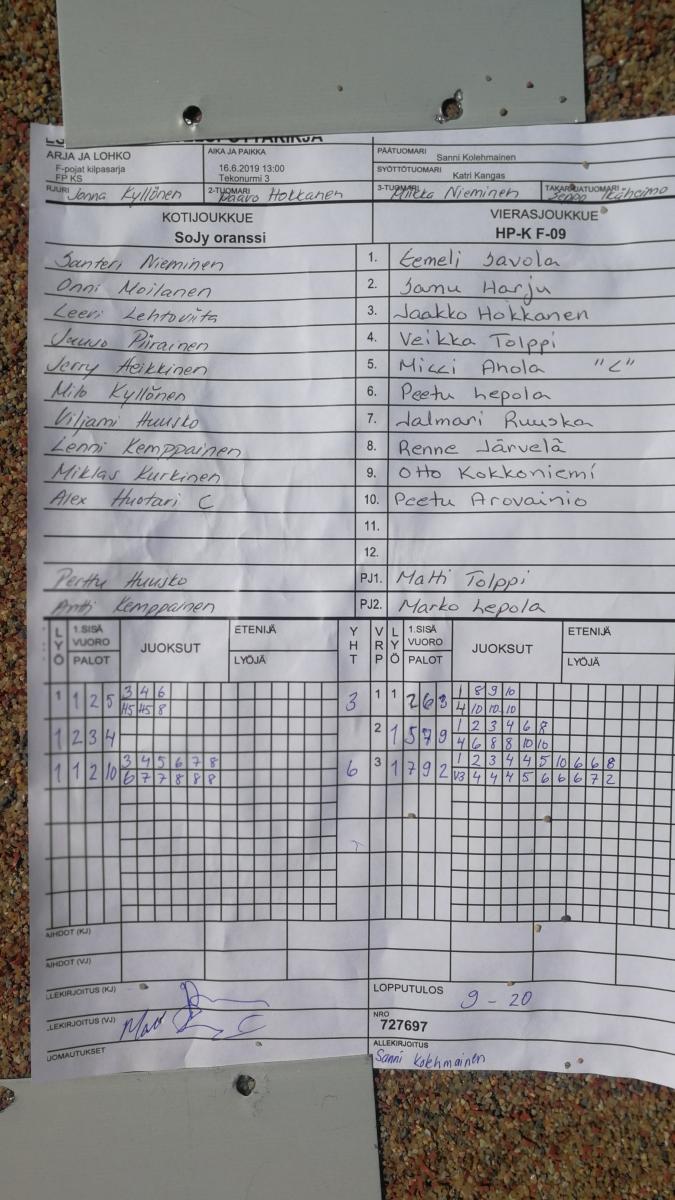 ARJA JA LOHKO
F-pojat kilpasarja
FP KS
AIKA JA PAIKKA
16.6.2019 13:00
Tekonurmi 3
PÄÄTUOMARI Sanni Kolehmainen
SYÖTTÖTUOMARI Katri Kangas
RJURI Janna Kyllönen
2-TUOMARI Paavo Hokkanen
3-TUOMARI Miikka Nieminen
TAKARAJATUOMARI Seppo Ikäheimo
KOTIJOUKKUE
SoJy oranssi
VIERASJOUKKUE
HP-K F-09
Santeri Nieminen 1. Eemeli Savola
Onni Moilanen 2. Samu Harju
Leevi Lehtoviita 3. Jaakko Hokkanen
Juuso Piirainen 4. Veikka Tolppi
Jerry Heikkinen 5. Micci Ahola "C"
Milo Kyllönen 6. Peetu Lepola
Viljami Huusko 7. Jalmari Ruuska
Lenni Kemppainen 8. Renne Järvelä
Miklas Kurkinen 9. Otto Kokkoniemi
Alex Huotari C 10. Peetu Arovainio
11.
12.
Perttu Huusko PJ1. Matti Tolppi
Antti Kemppainen PJ2. Marko Lepola
LYÖ 1.SISÄ VUORO PALOT JUOKSUT ETENIJÄ LYÖJÄ YHT VRP LYÖ 1.SISÄ VUORO PALOT JUOKSUT ETENIJÄ LYÖJÄ
3 4 6 1 8 9 10
1 1 2 5 3 1 1 2 6 3
H5 H5 8 4 10 10 10
1 2 3 4 6 8
1 2 3 4 2 1 5 7 9
4 6 8 8 10 10
3 4 5 6 7 8 1 2 3 4 4 5 10 6 6 8
1 1 2 10 6 3 1 7 9 2
6 7 7 8 8 8 V3 4 4 4 5 6 6 6 7 2
AIHDOT (KJ)
AIHDOT (VJ)
LLEKIRJOITUS (KJ)
LLEKIRJOITUS (VJ)
UOMAUTUKSET
LOPPUTULOS 9 - 20
NRO
727697
ALLEKIRJOITUS
Sanni Kolehmainen